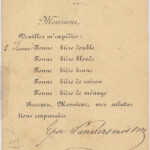 Monsieur,
Veuillez m'expédier:
2 Tonne bière double
Tonne bière blonde
Tonne bière brune
Tonne bière de saison
Tonne bière de ménage
Recevez, Monsieur, mes saluta-
tions empressées.